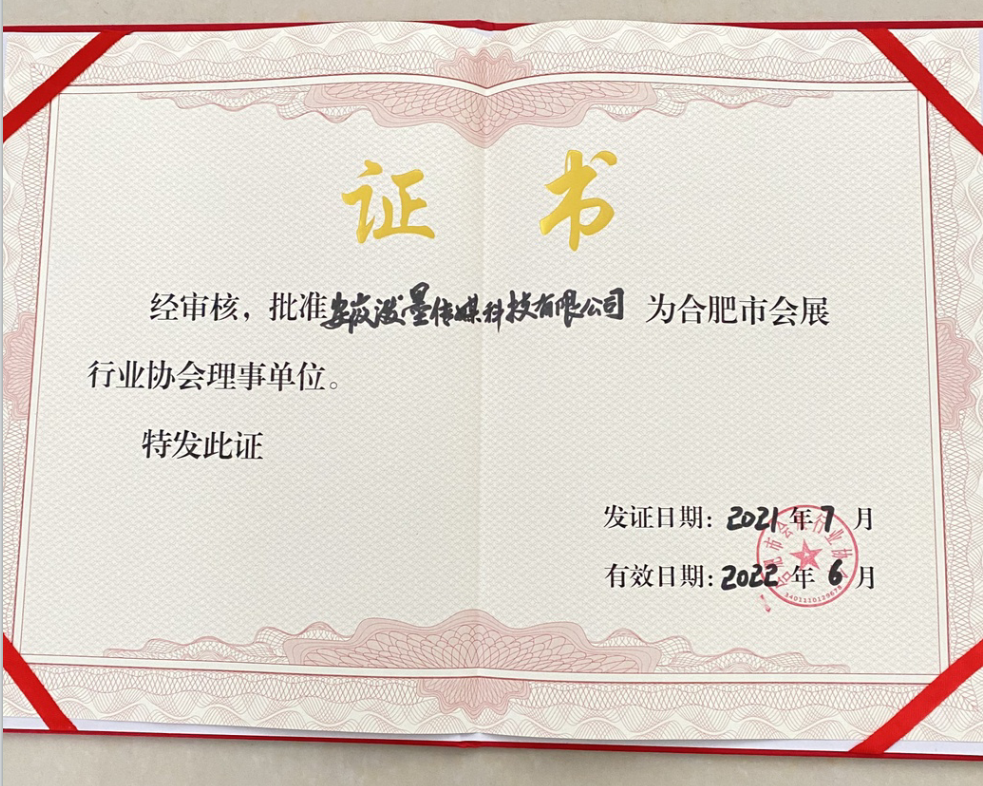 证书
经审核，批准安徽泼墨传媒科技有限公司 为合肥市会展
行业协会理事单位。
特发此证
发证日期：2021年7月
有效日期：2022年6月
合肥市会展行业协会